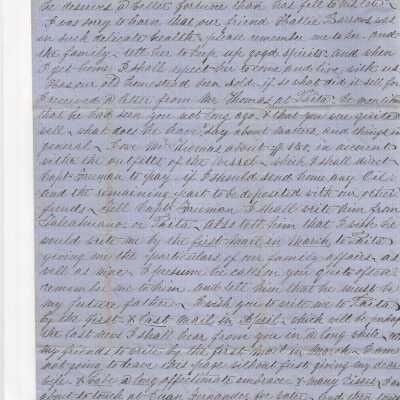 he deserves a better fortune than has fell to his lot.
I was sorry to learn that our friend Hattie Barrows was
in such delicate health, please remember me to her and
the family. tell her to keep up good spirits and when
I get home I shall expect her to come and live with us
Has our old homestead been sold. if so what did it sell for
I received a letter from Mr Thomas at Paita. he mentions
that he had seen you not long ago, & that you was quite
well, what does he have say about matters and things in
general. I owe Mr Thomas about $150, in account
with the outfits of the vessel, which I shall direct
Capt Freeman to pay if I should send home any Oil.
and the remaining part to be deposited with our other
funds. Tell Capt Freeman I shall write him from
Talcahuano or Paita. also tell him that I wish he
would write me by the first mail in March, to Paita
giving me the particulars of our family affairs as
well as mine. I presume he calls on you quite often
remember me to him and tell him that he must be
my future father. I wish you to write me to Paita
by the first & last mail in April, which will be
the last news I shall hear from you in a long while.
my friends to write by the first mail in March. I am
not going to leave this page without first giving my dear
wife & babe a long affectionate embrace & many kisses. I am
about to touch at Juan Fernandez for and then